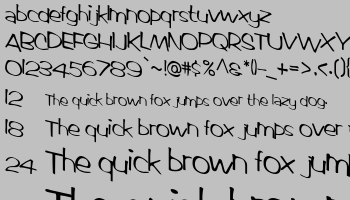 abcdefghijklmnopqrstuvwxyz
ABCDEFGHIJKLMNOPQRSTUVWXY
0123456789`~!@#$%^&*()-_+=>.<.(){
12 The quick brown fox jumps over the lazy dog.
18 The quick brown fox jumps over
24 The quick brown fox jum